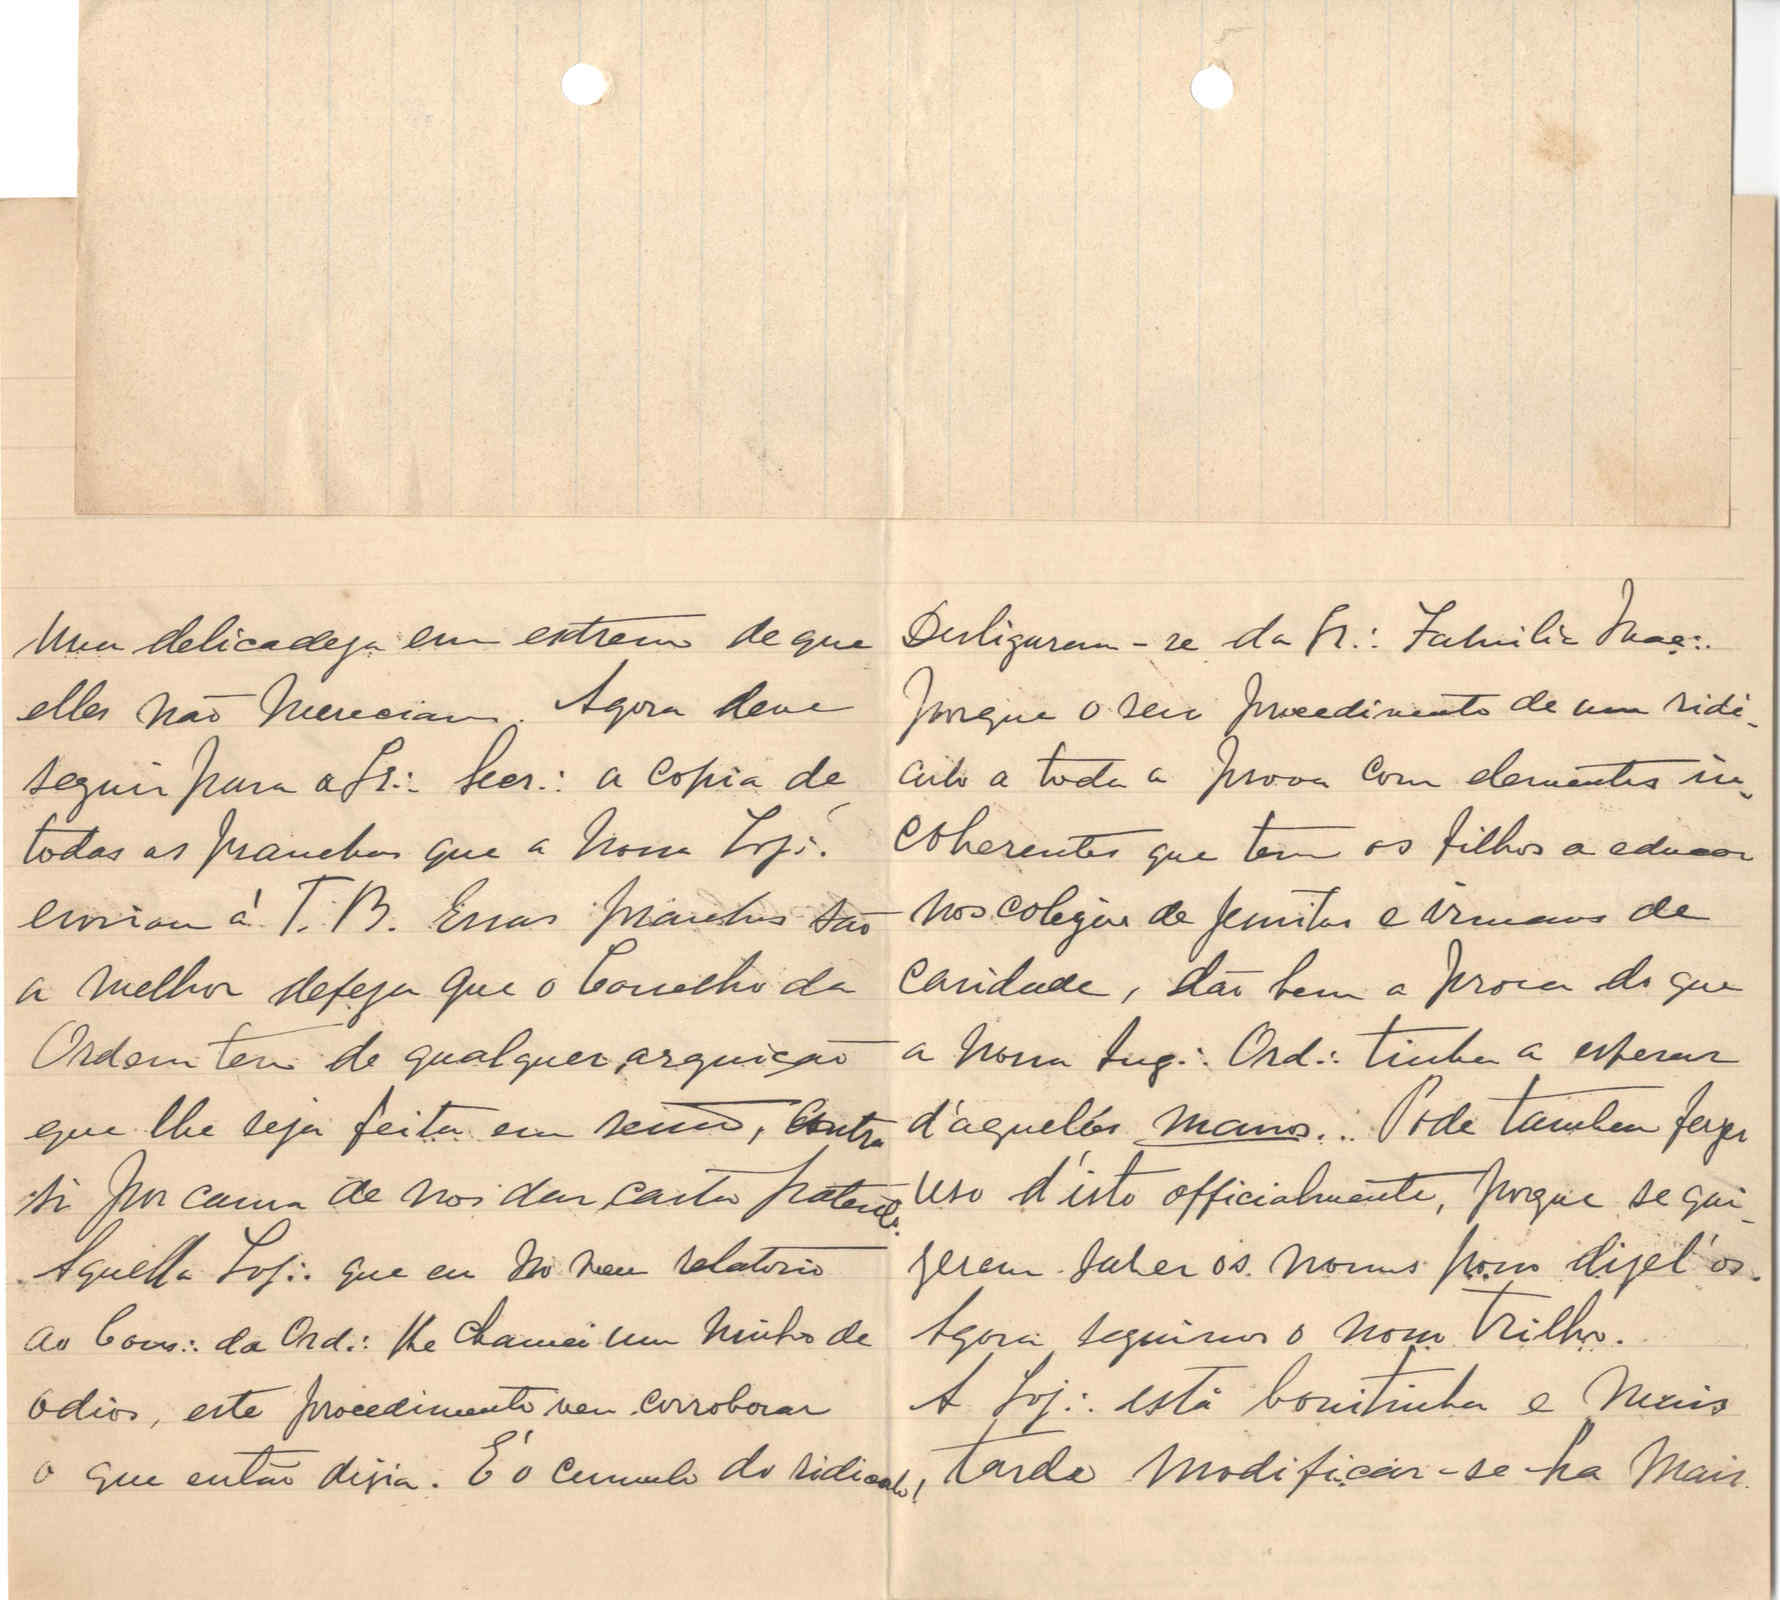 uma delicadeza em extremo de que
elles não mereciam. Agora deve
seguir para a Gr∴ Secr∴ a copia de
todas as pranchas que a nossa Loj∴
enviou á T. B. Essas pranchas são
a melhor defeza que o Conselho da
Ordem tem de qualquer arguição
que lhe seja feita em contra
si por causa de nos dar carta
Aquella Loj∴ que eu no meu relatorio
ao Cons∴ da Ord∴ lhe chamei um ninho de
odios, este procedimento veu corroborar
o que então dizia. É o cumulo do ridiculo!
Desligaram-se da Gr∴ Familia Maç∴
porque o seu procedimento de um ridi-
culo a toda a prova com elementos in-
coherentes que tem os filhos a educar
nos colegios de jesuitas e irmans de
caridade, dão bem a prova do que
a nossa Aug∴ Ord∴ tinha a esperar
d'aqueles manos... Pode tambem fazer
uso d'isto officialmente, porque se qui-
zerem saber os nomes posso dizel'os.
Agora seguimos o nosso trilho.
A Loj∴ está bonitinha e mais
tarde modificar-se-ha mais.